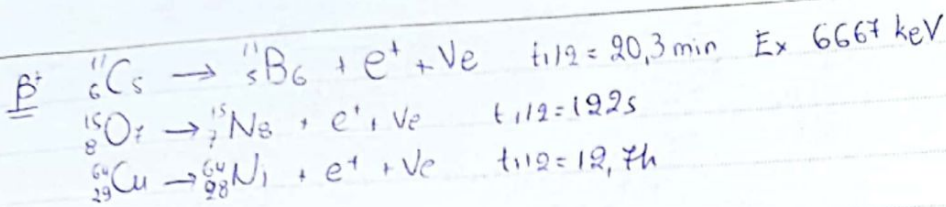 β⁺ ¹¹₆C₅ → ¹¹₅B₆ + e⁺ + Ve t₁/₂ = 20,3 min Ex 6667 keV
¹⁵₈O₇ → ¹⁵₇N₈ + e⁺ + Ve t₁/₂ = 122s
⁶⁴₂₉Cu → ⁶⁴₂₈Ni + e⁺ + Ve t₁/₂ = 12,7h